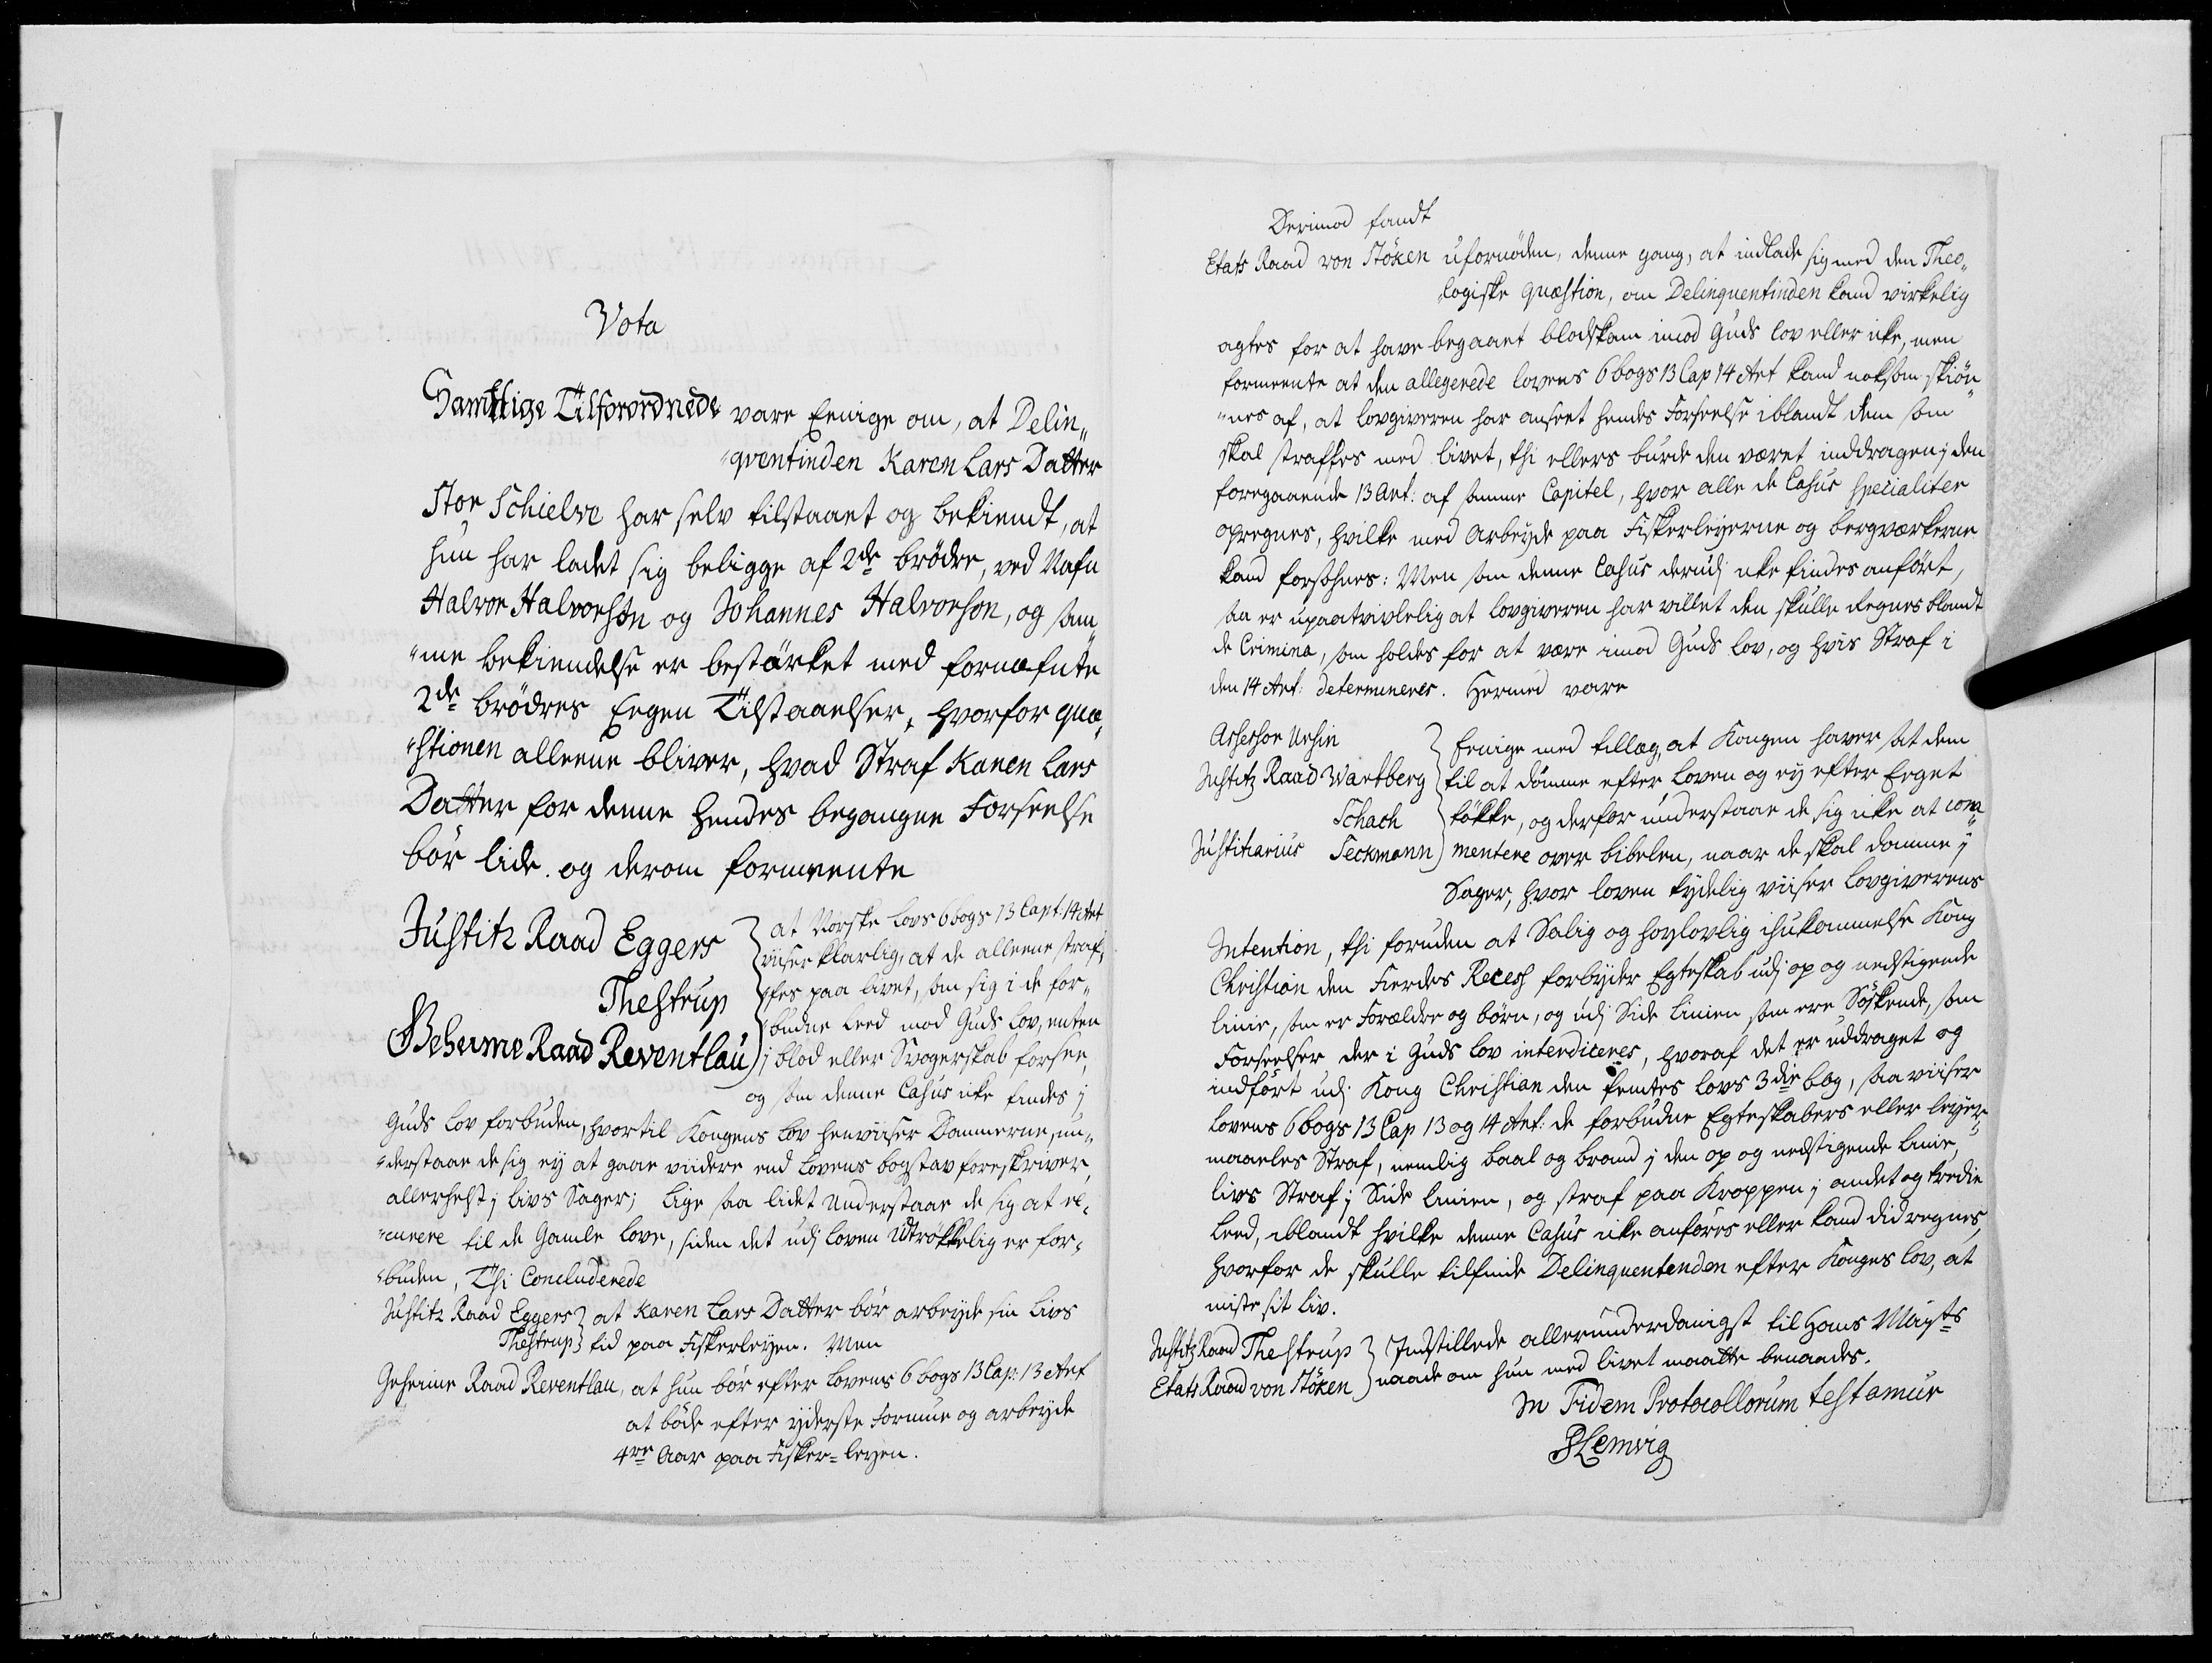 Vota
Samtlige Tilforordnede vare Eenige om, at Delin„
„qventinden Karen Lars Datter
Stor Schielve har selv tilstaaet og bekiendt, at
hun har ladet sig beligge af 2de brödre, ved Nafn
Halvor Halvorsön og Johannes Halvorson, og sam„
„me bekiendelse er bestärket med fornæfnte
2de brödres Eegen Tilstaaelser, hvorfor quæ„
„stionen alleene bliver, hvad Straf Karen Lars
Datter for denne hendes begangne Forseelse
bör lide. og derom formeente
Justitz Raad Eggers
Thestrup
Geheime Raad Reventlau
at Norske Lovs 6 bogs 13 Capt: 14 Art
viiser klarlig, at de alleene straf„
„fes paa livet, som sig i de for„
„budne Leed mod Guds Lov, enten
j blod eller Svogerskab forsee,
og som denne Casus icke findes j
Guds Lov forbuden, hvortil Kongens Lov henviiser Dommerne, un„
„derstaae de sig ey at gaae viidere end Lovens bogstav foreskriver,
allerhelst j livs Sager; lige saa lidet understaae de sig at re„
„currere til de Gamle Love, siden det udj Loven udtrökkelig er for„
„buden, Thi Concluderede
Justitz Raad Eggers
Thestrup
at Karen Lars Datter bör arbeyde sin Livs
tid paa Fiskerleyen. Men
Geheime Raad Reventlau, at hun bör efter Lovens 6 bogs 13 Cap: 13 Art
at böde efter yderste Formue og arbeyde
4re Aar paa Fisker=leyen.
Derimod fandt
Etats Raad von Stöken ufornöden, denne gang, at indlade sig med den Theo„
„logiske Quæstion, om Delinquentinden kand virkelig
agtes for at have begaaet blodskam imod Guds lov eller icke, men
formeente at den allegerede lovens 6 bogs 13 Cap 14 Art kand noksom skiön„
„nes af, at lovgiveren har anseet hendes Forseelse iblandt dem som
skal straffes med livet, thi ellers burde den været inddragen j den
foregaaende 13 Art: af samme Capitel, hvor alle de Casus specialiter
opregnes, hvilke med Arbeyde paa Fiskerleyerne og bergværkerne
kand forsohnes: Men som denne Casus derudj icke findes anfört,
saa er upaatvivlelig at lovgiveren har villet den skulle Regnes blandt
de Crimina, som holdes for at være imod Guds Lov, og hvis Straf i
den 14 Art: determineres. Hermed vare
Assessor Ursin
Justitz Raad Wartberg
Schach
Justitiarius Seckmann
Eenige med tillæg, at Kongen haver sat dem
til at dömme efter Loven og ey efter Eeget
tökke, og derfor understaae de sig icke at com„
mentere over bibelen, naar de skal domme j
Sager, hvor loven tydelig viiser Lovgiverens
Intention, thi foruden at Salig og hoylovlig ihukommelse Kong
Christian den Fierdes Recess forbyder Egteskab udj op og nedstigende
linie, som er Forældre og börn, og udj Side Linien som ere Söskende, som
Forseelser der i Guds Lov interdiceres, hvoraf det er uddraget og
indfört udj Kong Christian den femtes Lovs 3die bog, saa viiser
Lovens 6 bogs 13 Cap 13 og 14 Art: de forbudne Egteskabers eller leyer„
maales Straf, nemlig baal og brand j den op og nedstigende linie,
livs Straf j Side linien, og straf paa Kroppen j andet og tredie
Leed, iblandt hvilke denne Casus icke anföres eller kand did regnes,
hvorfor de skulle tilfinde Delinquentinden efter Konges lov, at
miste sit liv.
Justitz Raad Thestrup
Etats Raad von Stöken
Indstillede allerunderdanigst til Hans Mayts
naade om hun med livet maatte benaades.
In Fidem Protocollorum testamur
PLemvig